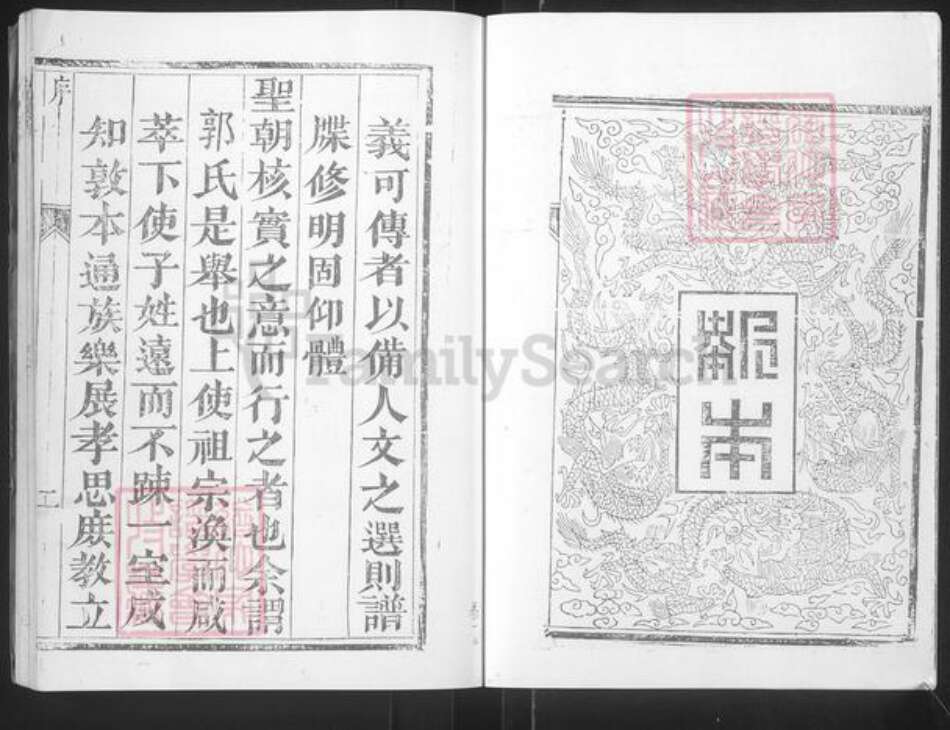 義可傳者以備人文之選則譜
牒修明固仰體
聖朝核實之意而行之者也余謂
郭氏是舉也上使祖宗渙而咸
萃下使子姓遠而不踈一室咸
知敦本通族樂展孝思庶教立
序
FamilySearch